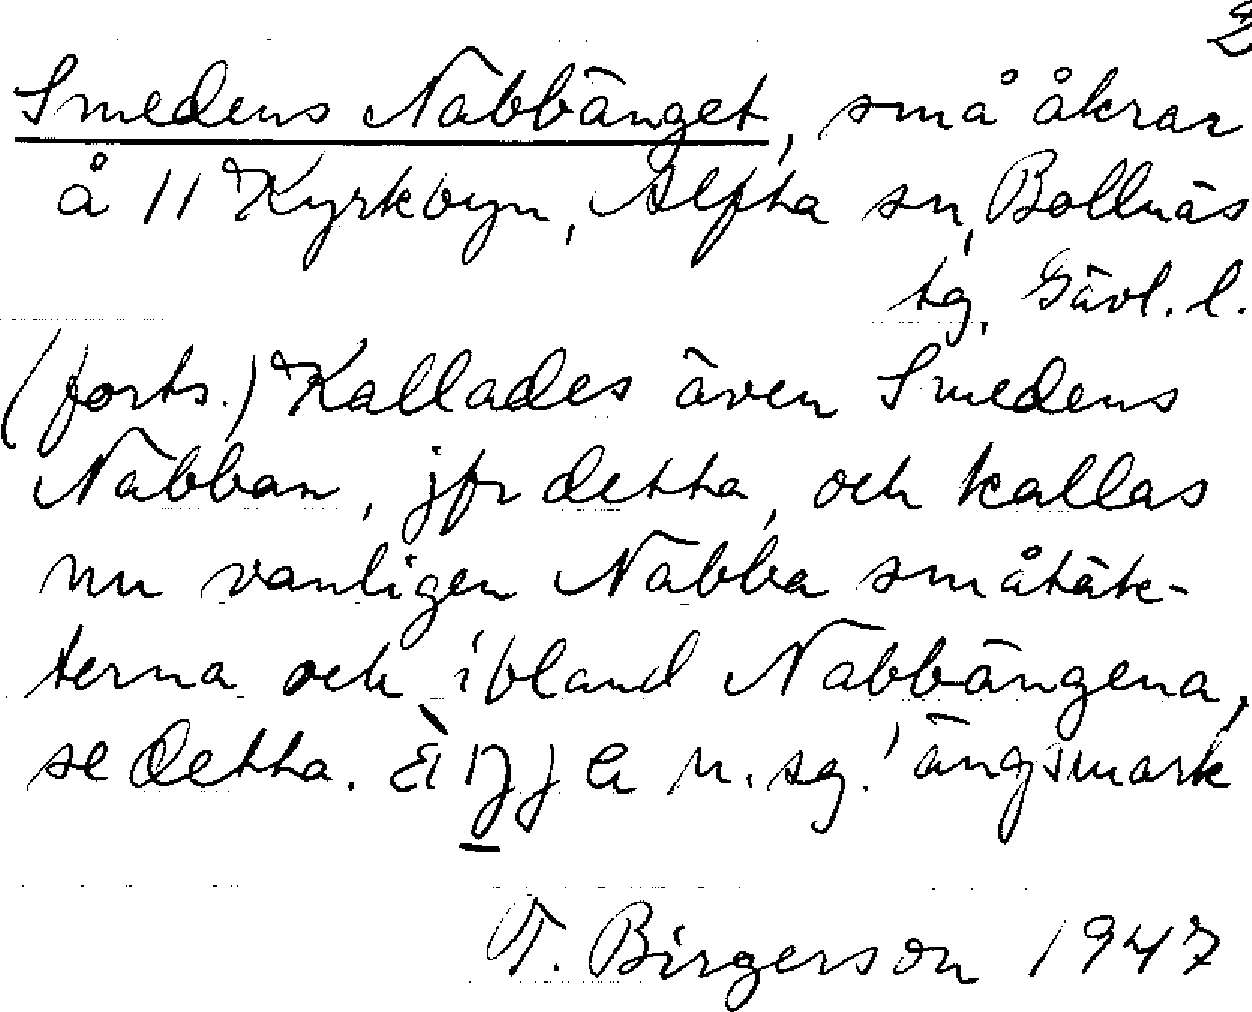 2
Smedens Nabbänget, små åkrar
å 11 Kyrkbyn, Alfta sn, Bollnäs
tg, Gävl. l.
(forts.) Kallades även Smedens
Nabban, jfr detta, och kallas
nu vanligen Nabba småtäk-
terna och ibland Nabbängena,
se detta. n. sg. 'ängsmark
T. Birgerson 1947